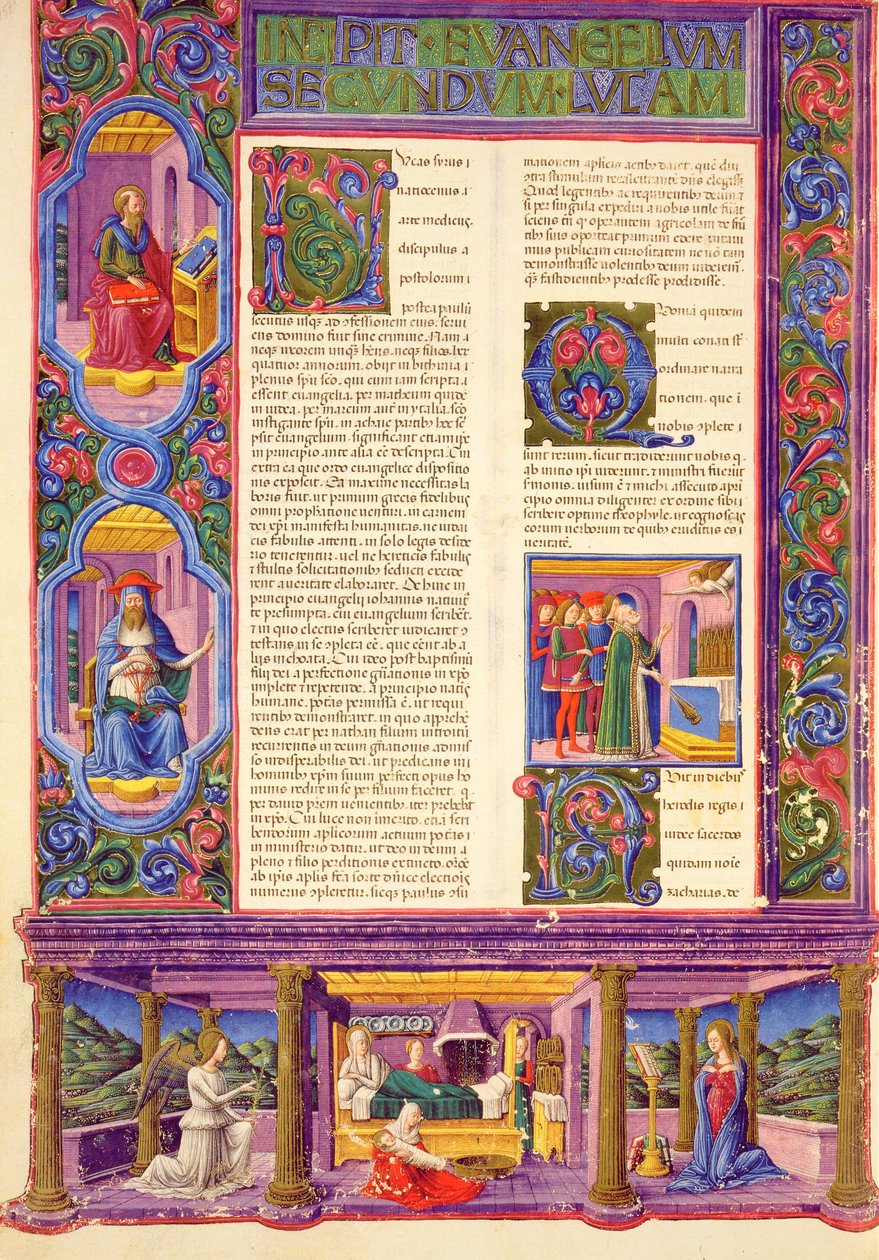 INCIPIT·EVANGELVM
SECVNDVM·LVCAM
Lucas syrus i
natiocenus i
arte medicus.
discipulus a
postolorum i
postea paulū
secutus usq; ad ꝯfessionem eius. serui
ens domino fuit sine crimine. Nam i
neq; uxorem unq; hēns. neq; filios. lxx
quatuor annorum. obiit in bithinia i
plenus spū sc̄o. qui cum iam scripta i
essent euangelia. per matheum quide
in iudea. per marcum aut̄ in ytalia. sc̄o
instigante spū. in achaie partibus hoc sc̄
psit euangelium. significans etiam ip̄e
in principio ante alia ēē descripta. Cui
extra ea que ordo euangelice dispositio
nis exposcit. Ea maxime necessitas la
boris fuit. ut primum grecis fidelibus
omni prophatione uenturi. in carnem
dei xp̄i manifesta humanitas. ne iudai
cis fabulis attenti. in solo legis deside
rio tenerentur. uel ne hereticis fabulis
⁊ stultis solicitationibus seducti excide
rent a ueritate elaboraret. Dehinc in
principio euangelii iohannis natiuit̄
te presumpta. cui euangelium scriberet
⁊ in quo electus scriberet iudicaret ꝯ
testans in se ꝯpleta ēē. que cēnt ab a
liis inchoata. Cui ideo post baptismū
filii dei a perfectione gn̄ationis in xp̄o
implete ⁊ repetende. a principio natis
humane. potās permissa ē. ut requi
rentibus demonstraret. in quo appreh̄e
dens erat per nathan filium introitu
recurrentis in deum gn̄ationis admis
so indisparabilis dei. ut predicans in
hominibus xp̄m suum perfecti opus ho
minis redire in se per filium faceret. q
per dauid prem uenientibus. iter prebebat
in xp̄o. Cui luce non īmerito. etiā scri
bendorum aplicorum actuum potās i
in ministerio datur. ut deo in deum a
pleno ⁊ filio perditionis extincto. orōe
ab ip̄is aplis fc̄a sorte dn̄ice electiois
numerus ꝯpleretur. sicq; paulus ꝯsū
mationem aplicis actibus daret. que diu
ꝯtra stimulum recalcitrante dn̄s elegiss;
Quod legentibus ac requirentibus deum ⁊
si per singula expediri a nobis utile fuāt
sciens tn̄ q̄ operantem agricolam de fru
tibus suis oporteat primum edere uitaui
mus publicam curiositatem ne nō tam
demonstrasse uolentibus deum uideremʳ.
q̄; fastidientibus prodesse prodidisse.
Qoniā quidem
multi conati sт̄
ordinare narra
tionem. que ī
nobis ꝯplete i
sunt rerum. sicut tradiderunt nobis q.
ab initio ip̄i uiderunt. ⁊ ministri fuerūt
sermonis. uisum ē ⁊ michi assecuto a prī
cipio omnia diligenter ex ordine tibi i
scribere optime theophyle. ut cognoscas
eorum uerborum de quibus eruditus es i
ueritatē.
Fuit in diebus
herodis regis i
iudee sacerdos
quidam noīe
zacharias. de